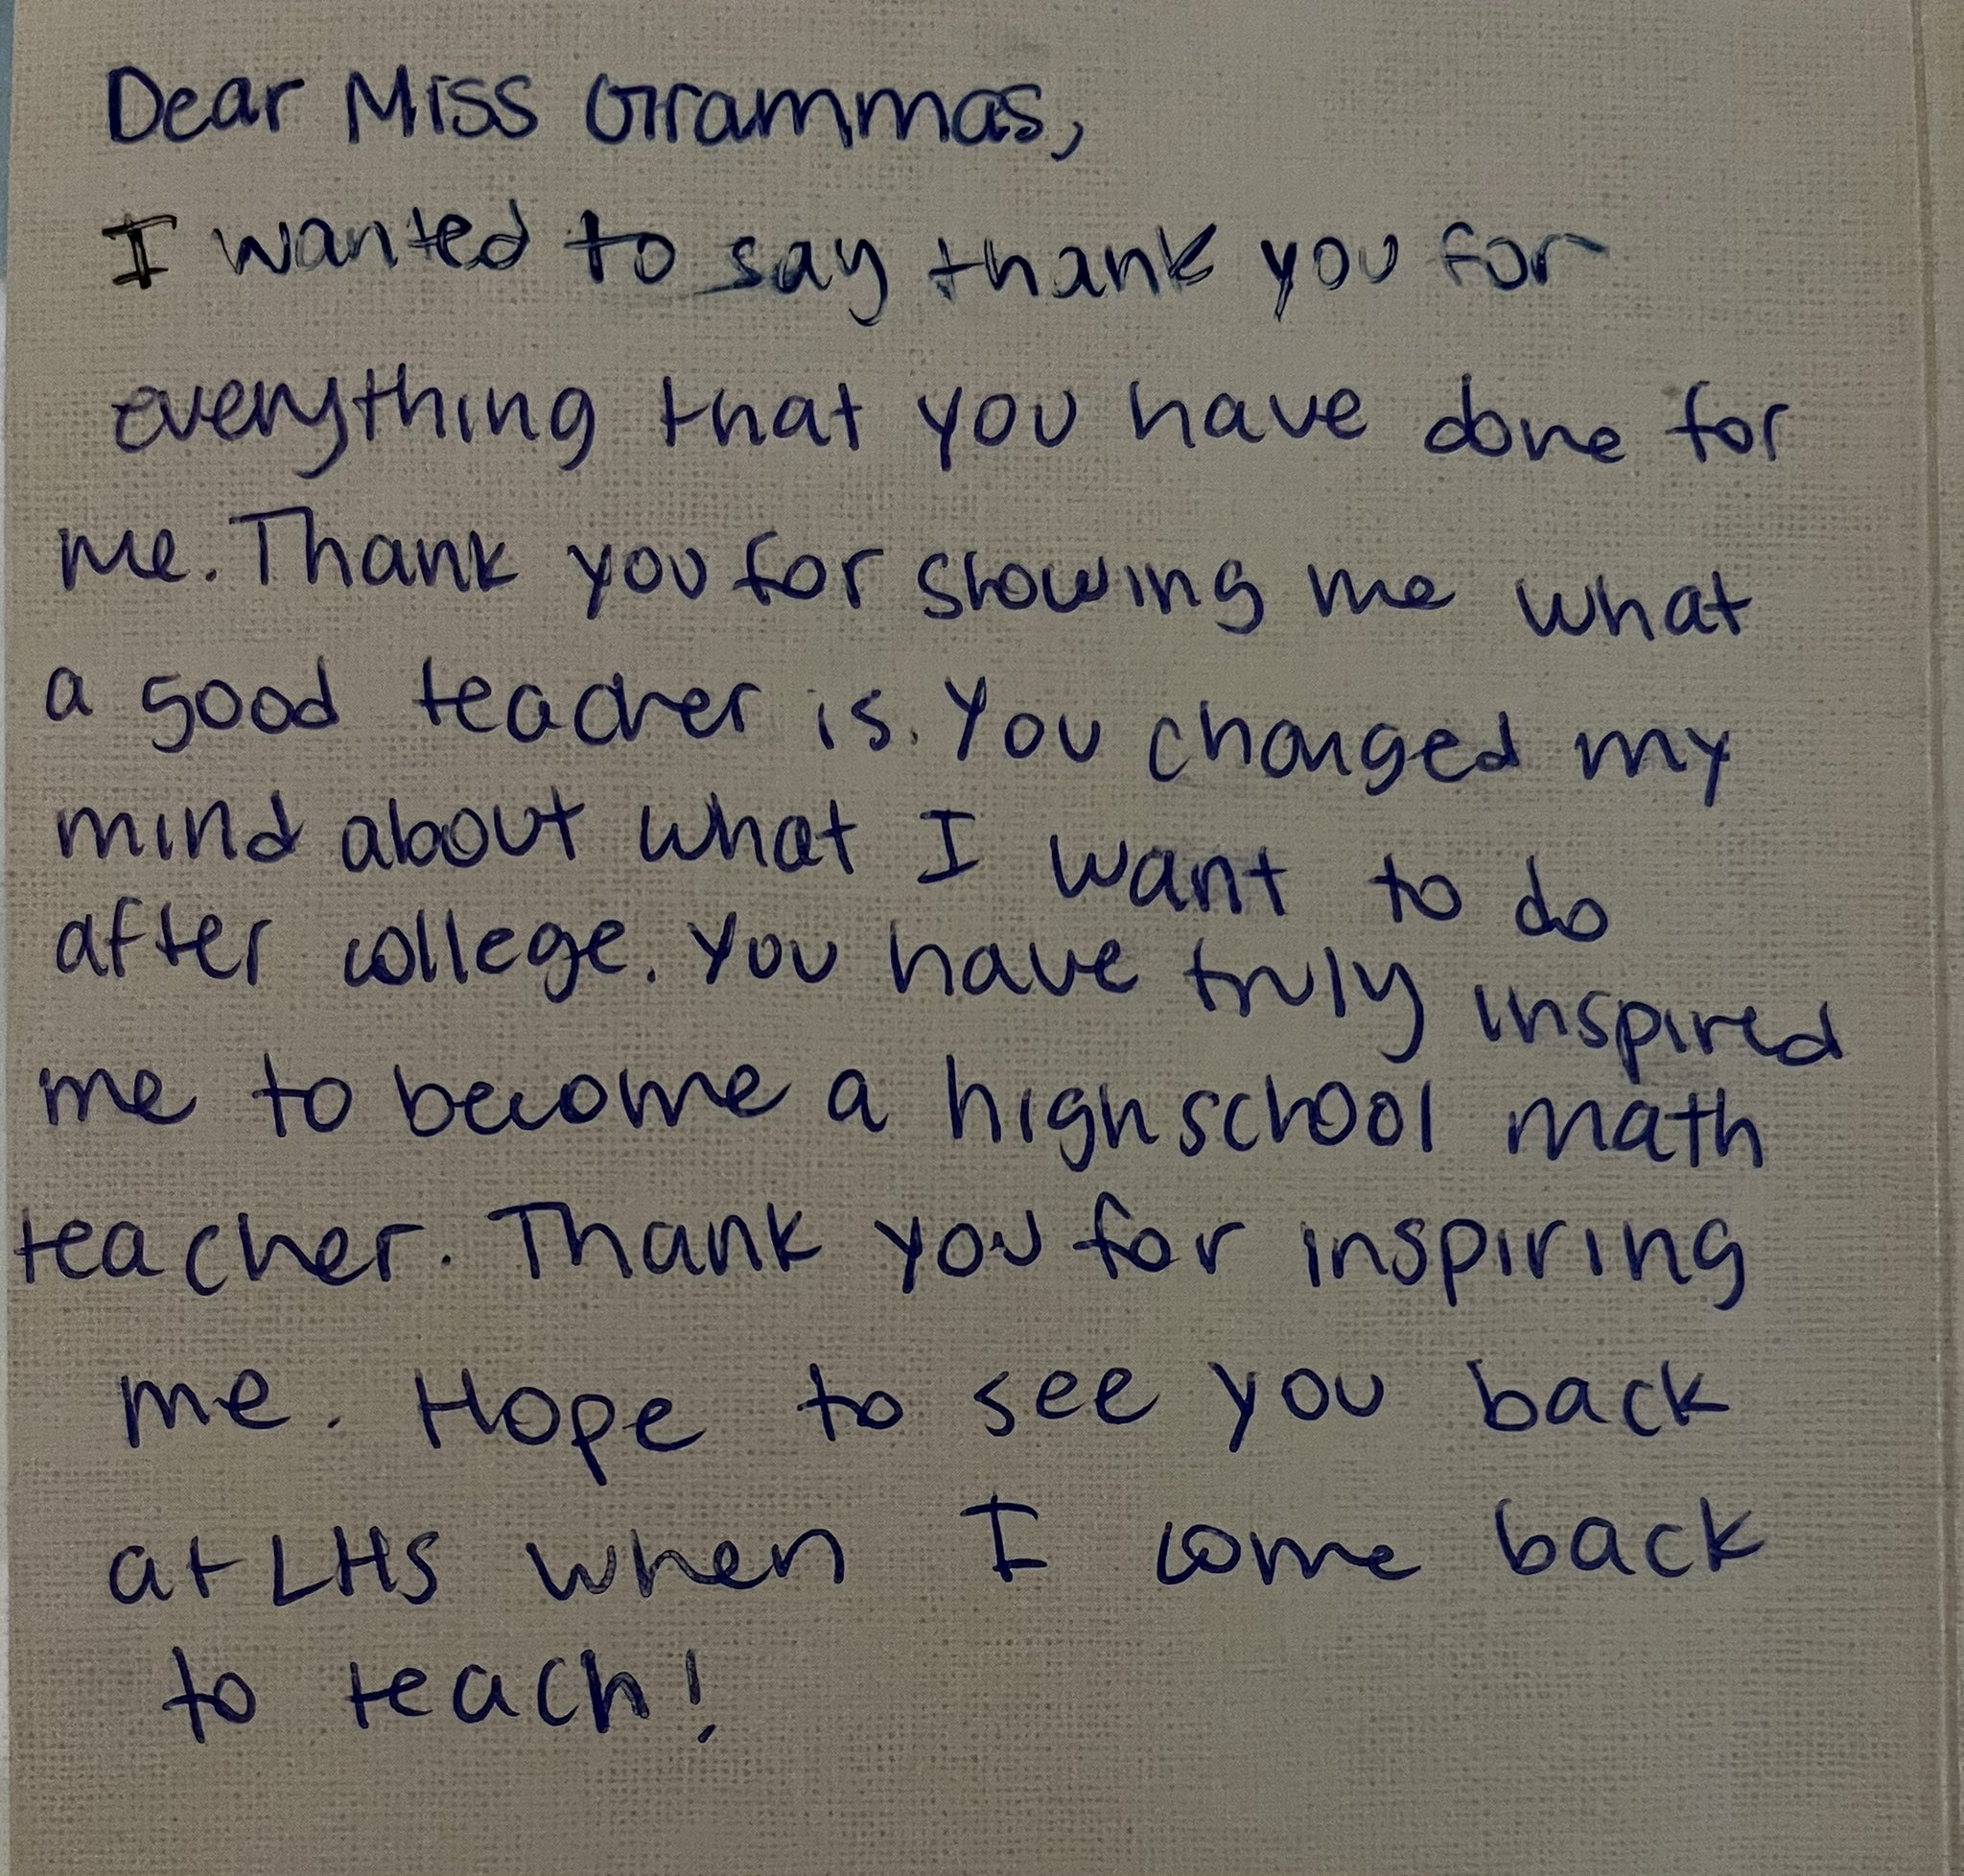 Dear Miss Grammas,
I wanted to say thank you for
everything that you have done for
me. Thank you for showing me what
a good teacher is. You changed my
mind about what I want to do
after college. You have truly inspired
me to become a highschool math
teacher. Thank you for inspiring
me. Hope to see you back
at LHS when I come back
to teach!